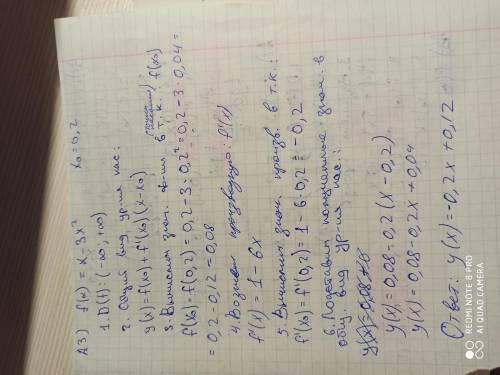 А3) f(x) = x - 3x² x₀ = 0,2
1. D(f): (-∞; +∞)
2. Общий вид ур-ия кас:
y(x) = f(x₀) + f'(x₀)(x-x₀)
3. Вычислим знач. ф-ии в т.к. (точка касания) f(x₀)
f(x₀) = f(0,2) = 0,2 - 3·0,2² = 0,2 - 3·0,04 =
= 0,2 - 0,12 = 0,08
4. производную: f'(x)
f'(x) = 1 - 6x
5. Вычислим знач. произв. в т.к.:
f'(x₀) = f'(0,2) = 1 - 6·0,2 = -0,2
6. Подставим знач. в
общ. вид ур-ия кас:
y(x) = 0,08 - 0,2(x - 0,2)
y(x) = 0,08 - 0,2x + 0,04
Ответ: y(x) = -0,2x + 0,12
REDMI NOTE 8 PRO
AI QUAD CAMERA